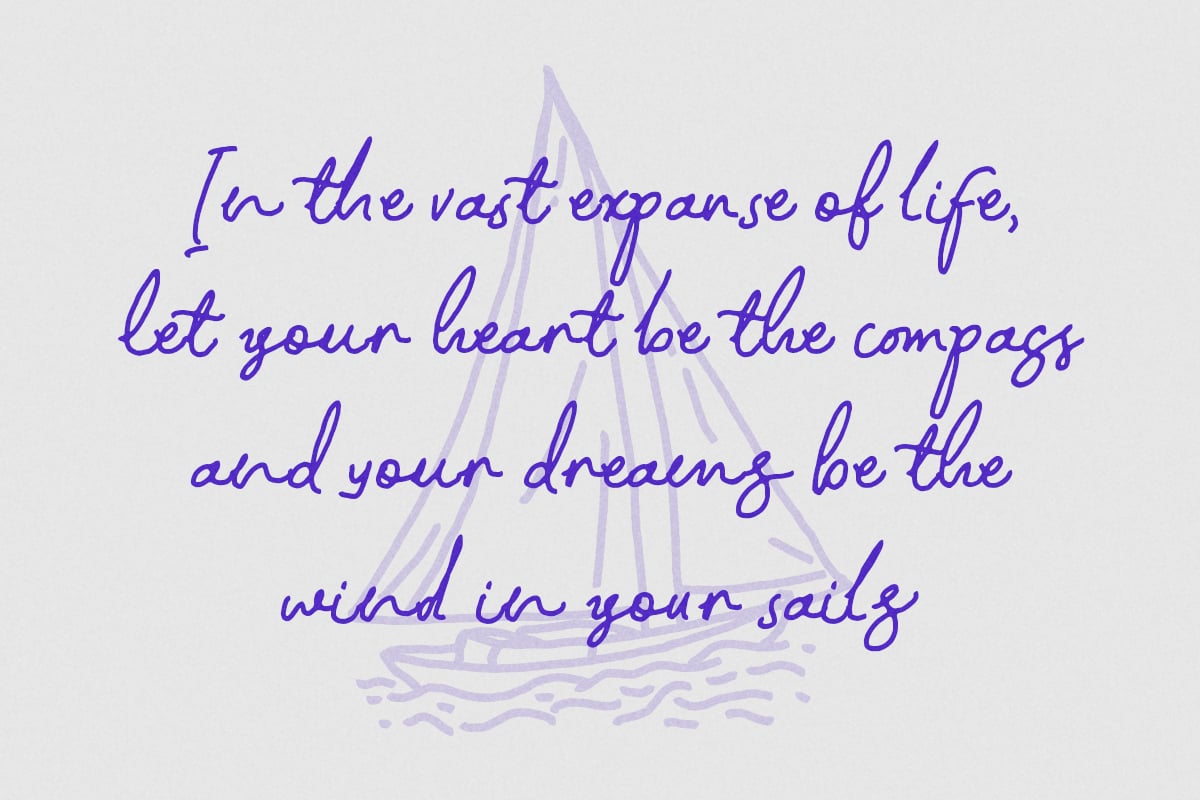 In the vast expanse of life,
let your heart be the compass
and your dreams be the
wind in your sails